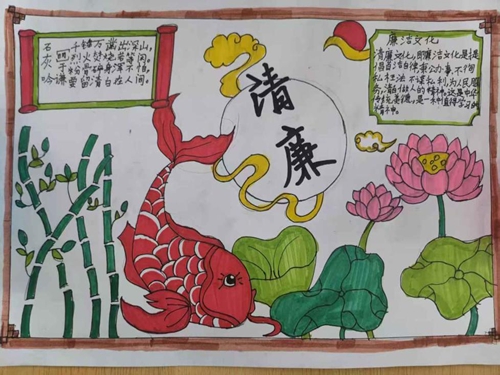 石灰吟
明 于谦
千锤万凿出深山,
烈火焚烧若等闲。
粉骨碎身浑不怕,
要留清白在人间。
清廉
廉洁文化
清廉文化,即廉洁文化是提
倡自洁自律,秉公办事,不徇
私枉法 不谋私利,为人民服
务,清白做人的精神。这是中华
传统美德,是一种值得学习的
精神。